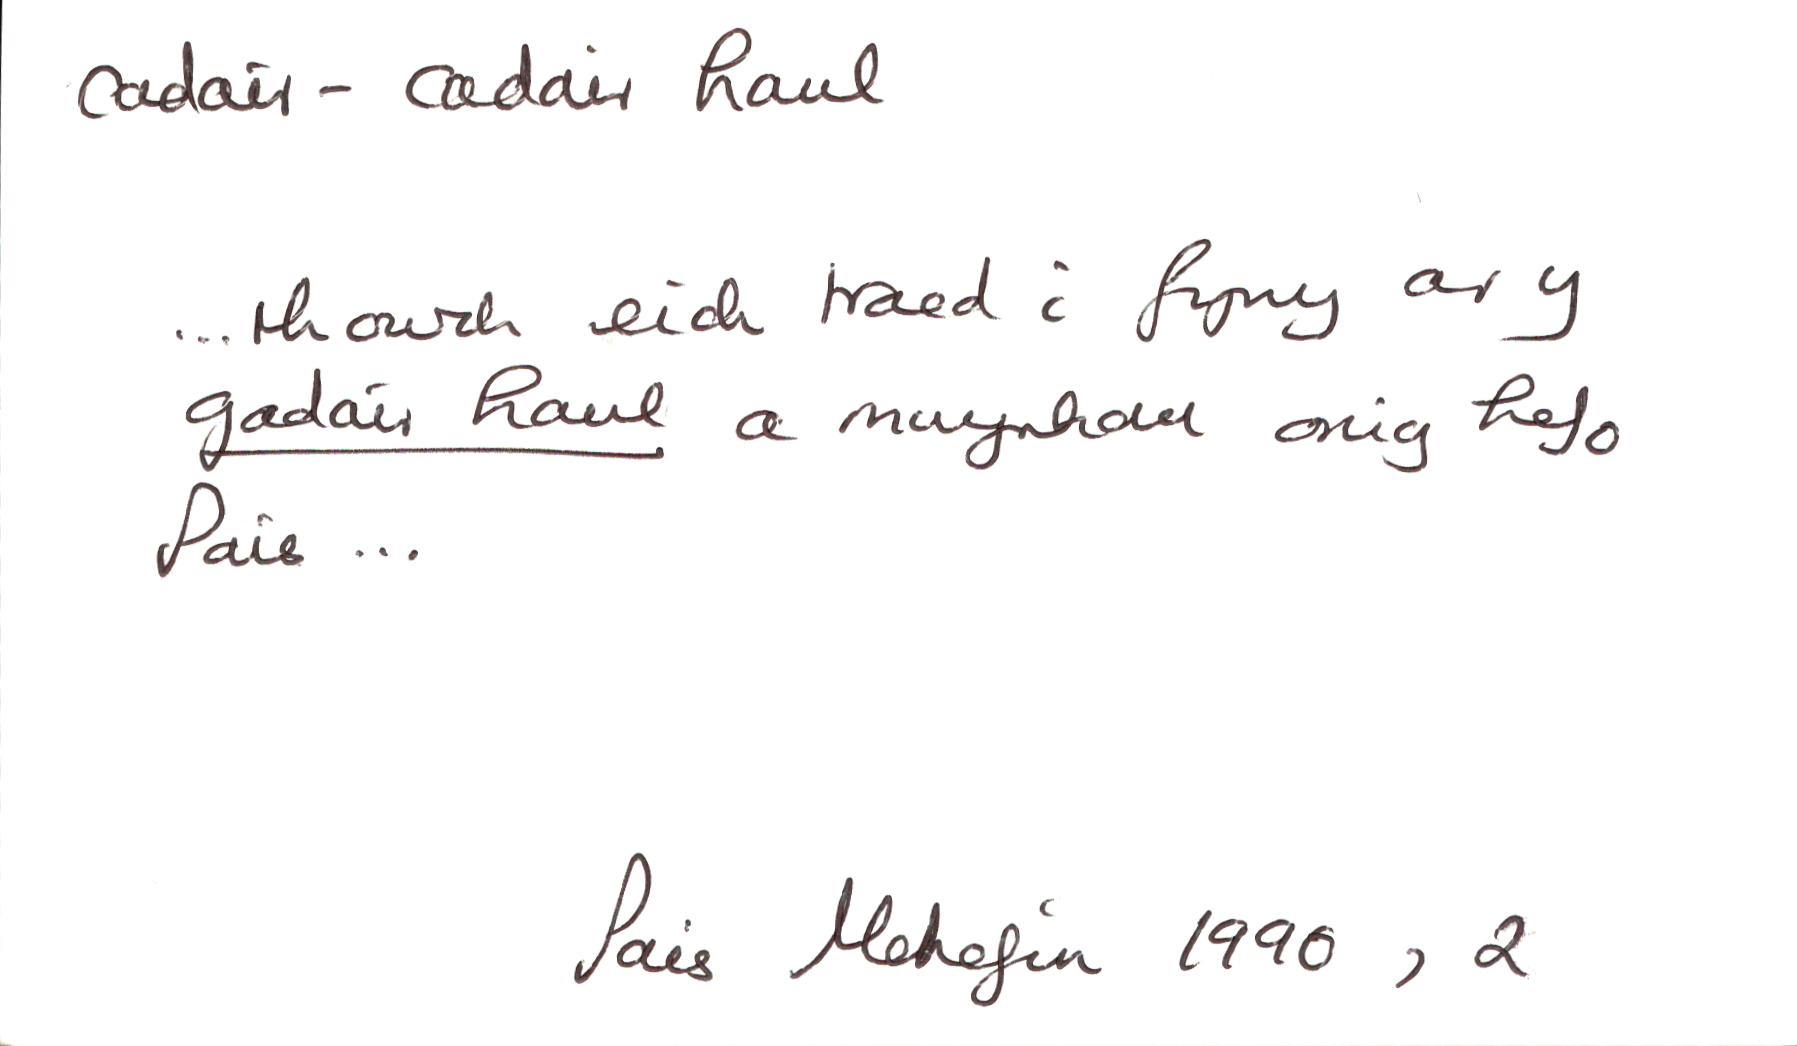 cadair - cadair haul
...rhowch eich traed i fyny ar y
gadair haul a mwynhau orig hefo
Pais ...
Pais Mehefin 1990, 2